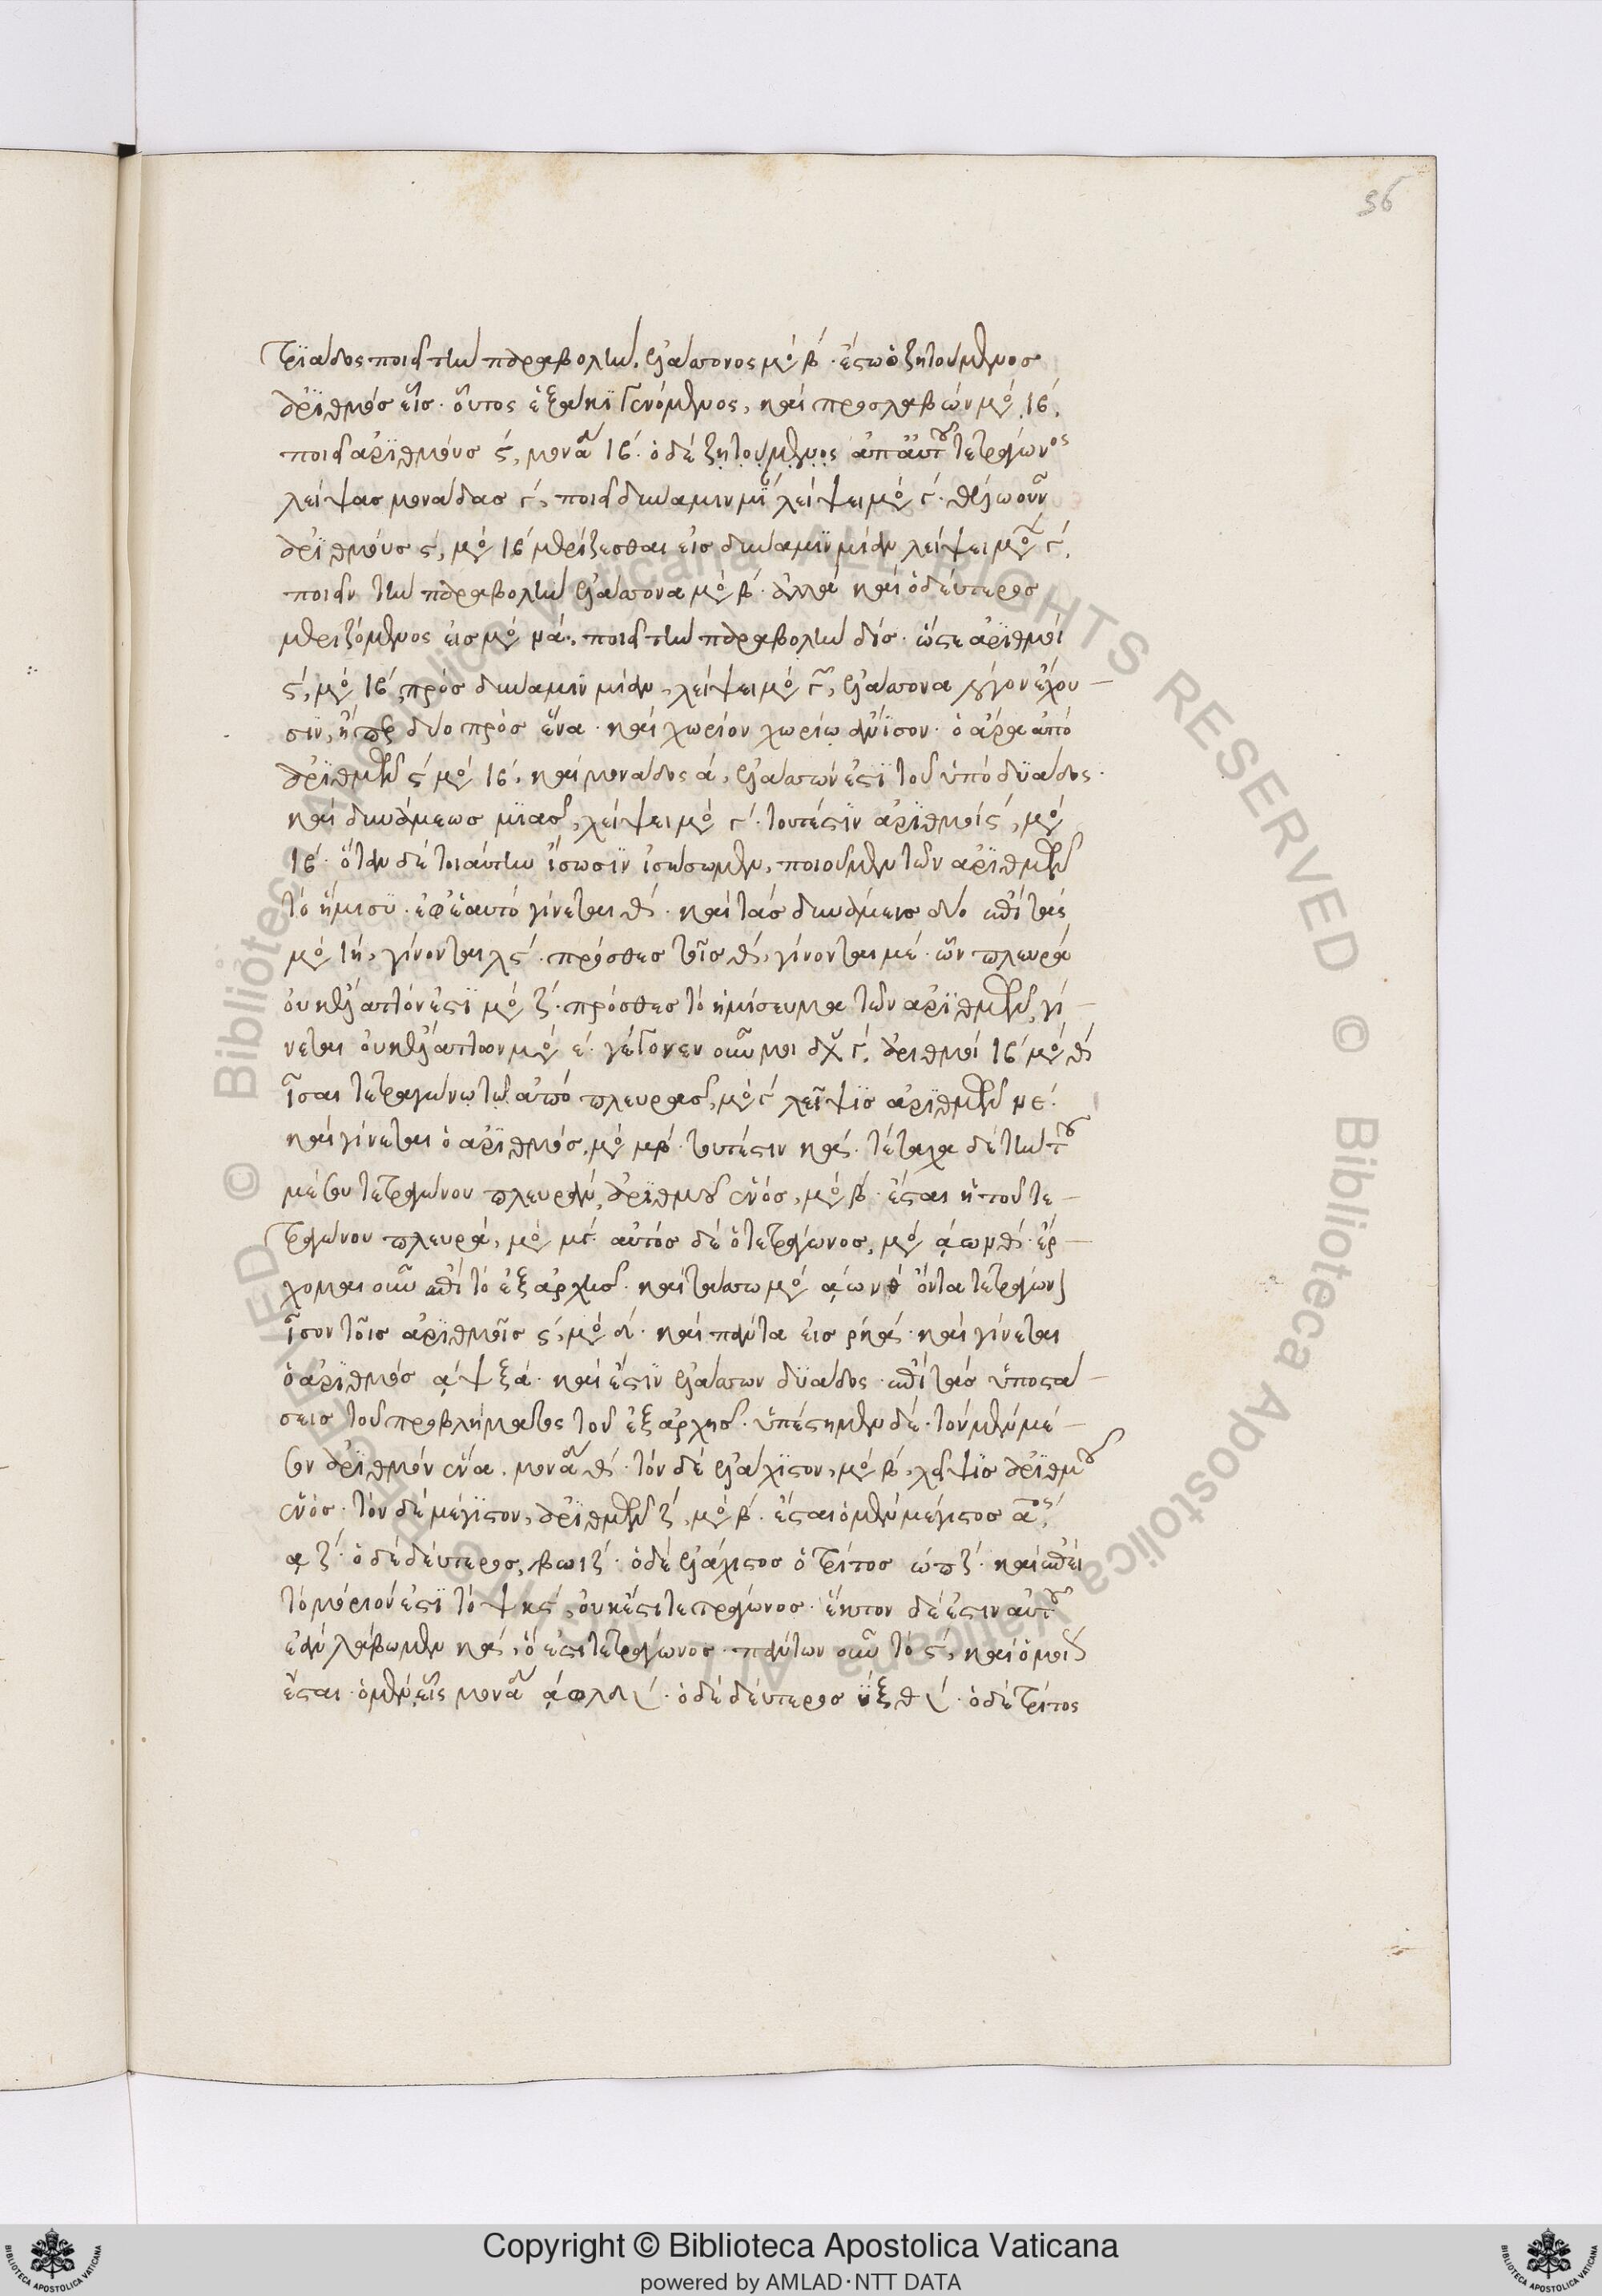 36
τριάδος ποιεῖ τὴν παραβολὴν, ἐλάσσονος μο β· ἔστω ὁ ζητούμενος
ἀρϊθμὸσ εἷσ· οὗτος ἑξάκϊ γενόμενος, καὶ προσλαβὼν μο ιβ,
ποιεῖ ἀρϊθμοὺσ ς, μονα ιβ· ὁ δὲ ζητούμενος ἀπ αὐτοῦ τετράγωνος
λείψασ μονάδασ γ, ποιεῖ δύναμιν μϊ λείψει μο γ· θέλω οὖν
ἀρϊθμοὺσ ς, μο ιβ μερίζεσθαι εἰσ δύναμϊν μίαν λείψει μο γ,
ποιεῖν τὴν παραβολὴν ἐλάσσονα μο β· ἀλλὰ καὶ ὁ δεύτεροσ
μεριζόμενος εἰσ μο μά, ποιεῖ τὴν παραβολὴν δίσ· ὥστε ἀρϊθμοὶ
ς, μο ιβ, πρὸσ δύναμιν μίαν, λείψει μο γ, ἐλάσσονα λόγον ἔχου-
σιν, ἤπερ δύο πρὸσ ἕνα· καὶ χωρίον χωρίω ἄνϊσον· ὁ ἄρα ἀπὸ
ἀρϊθμῶν ς μο ιβ, καὶ μονάδος ά, ἐλάσσων ἐστϊ τοῦ ὑπὸ δϋάδος·
καὶ δυνάμεωσ μϊᾶσ, λείψει μο γ· τουτέστϊν ἀρϊθμοὶ ς, μο
ιβ· ὅταν δὲ τοιαύτην ἴσωσϊν ἰσώσωμεν, ποιοῦμεν τῶν ἀρϊθμῶν
τὸ ἥμισϋ· ἐφ ἑαυτὸ γίνεται θ· καὶ τὰσ δυνάμεισ δύο ἐπὶ τὰς
μο ιή, γίνονται λς· πρόσθεσ τοῖσ θ, γίνονται μέ· ὧν πλευρὰ
οὐκ ἔλαττόν ἐστϊ μο ζ· πρόσθεσ τὸ ἡμίσευμα τῶν ἀρϊθμῶν, γί-
νεται οὐκ ἔλαττον μο έ· γέγονεν οὖν μοι ἀρχ γ, ἀριθμοὶ ιβ μο θ
ἴσαι τετραγώνω τῶ ἀπὸ πλευρᾶσ, μο γ λεῖψϊσ ἀρϊθμῶν με·
καὶ γίνεται ὁ ἀρϊθμὸσ, μο μβ· τουτέστιν κά· τέταχα δὲ τὴν τοῦ
μέσου τετραγώνου πλευρὰν, ἀρϊθμοῦ ἑνὸσ, μο β· ἔσται ἡ τοῦ τε-
τραγώνου πλευρὰ, μο μγ· αὐτὸσ δὲ ὁ τετράγωνοσ, μο ͵άωμθ· ἔρ-
χομαι οὖν ἐπὶ τὸ ἐξ ἀρχῆσ· καὶ τάσσω μο ͵άωμθ ὄντα τετράγων
ἴσον τοῖσ ἀρϊθμοῖσ ς, μο δ· καὶ πάντα εἰσ ρκά· καὶ γίνεται
ὁ ἀρϊθμὸσ ͵άψξά· καὶ ἔστϊν ἐλάσσων δϋάδος· ἐπὶ τὰσ ὑποστά-
σεισ τοῦ προβλήματος τοῦ ἐξ ἀρχῆσ· ὑπέστημεν δὲ· τὸν μὲν μέ-
σον ἀρϊθμὸν ἕνα. μονα θ· τὸν δὲ ἐλάχϊστον, μο β, λεῖψϊσ ἀρϊθμοῦ
ἑνὸσ· τὸν δὲ μέγϊστον, ἀρϊθμῶν ζ, μο β· ἔσται ὁ μὲν μέγιστοσ αος,
͵αζ· ὁ δὲ δεύτεροσ, ͵βωιζ· ὁ δὲ ἐλάχιστος ὁ τρίτοσ ώπζ· καὶ ἐπεὶ
τὸ μόριόν ἐστϊ τὸ ψκς, οὐκ ἔστι τετράγωνοσ· ἕκτον δέ ἐστιν αὐτοῦ
ἐὰν λάβωμεν κά, ὅ ἐστι τετράγωνοσ· πάντων οὖν τὸ ς, καὶ ὁμοί
ἔσται· ὁ μὲν εἷς μονα ͵άφλδ· ὁ δὲ δεύτεροσ ύξθ· ὁ δὲ τρίτος
© Biblioteca Apostolica Vaticana ALL RIGHTS RESERVED
Copyright © Biblioteca Apostolica Vaticana
powered by AMLAD·NTT DATA
BIBLIOTECA APOSTOLICA VATICANA